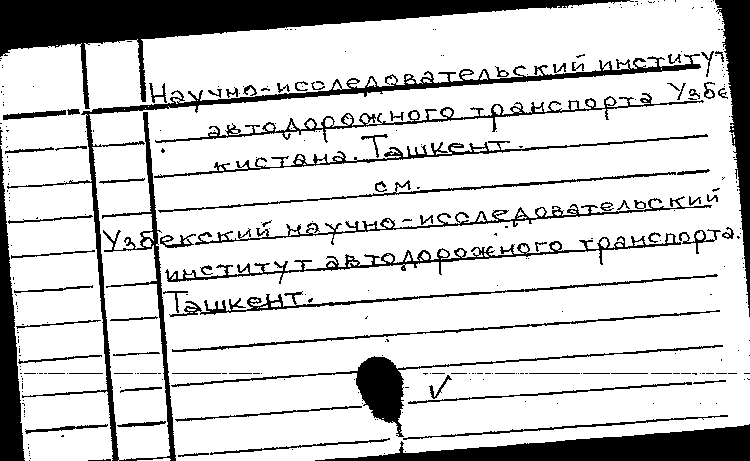 Научно-исследовательский институт
автодорожного транспорта Узбе
кистана. Ташкент.
см.
Узбекский научно-исследовательский
институт автодорожного транспорта.
Ташкент.